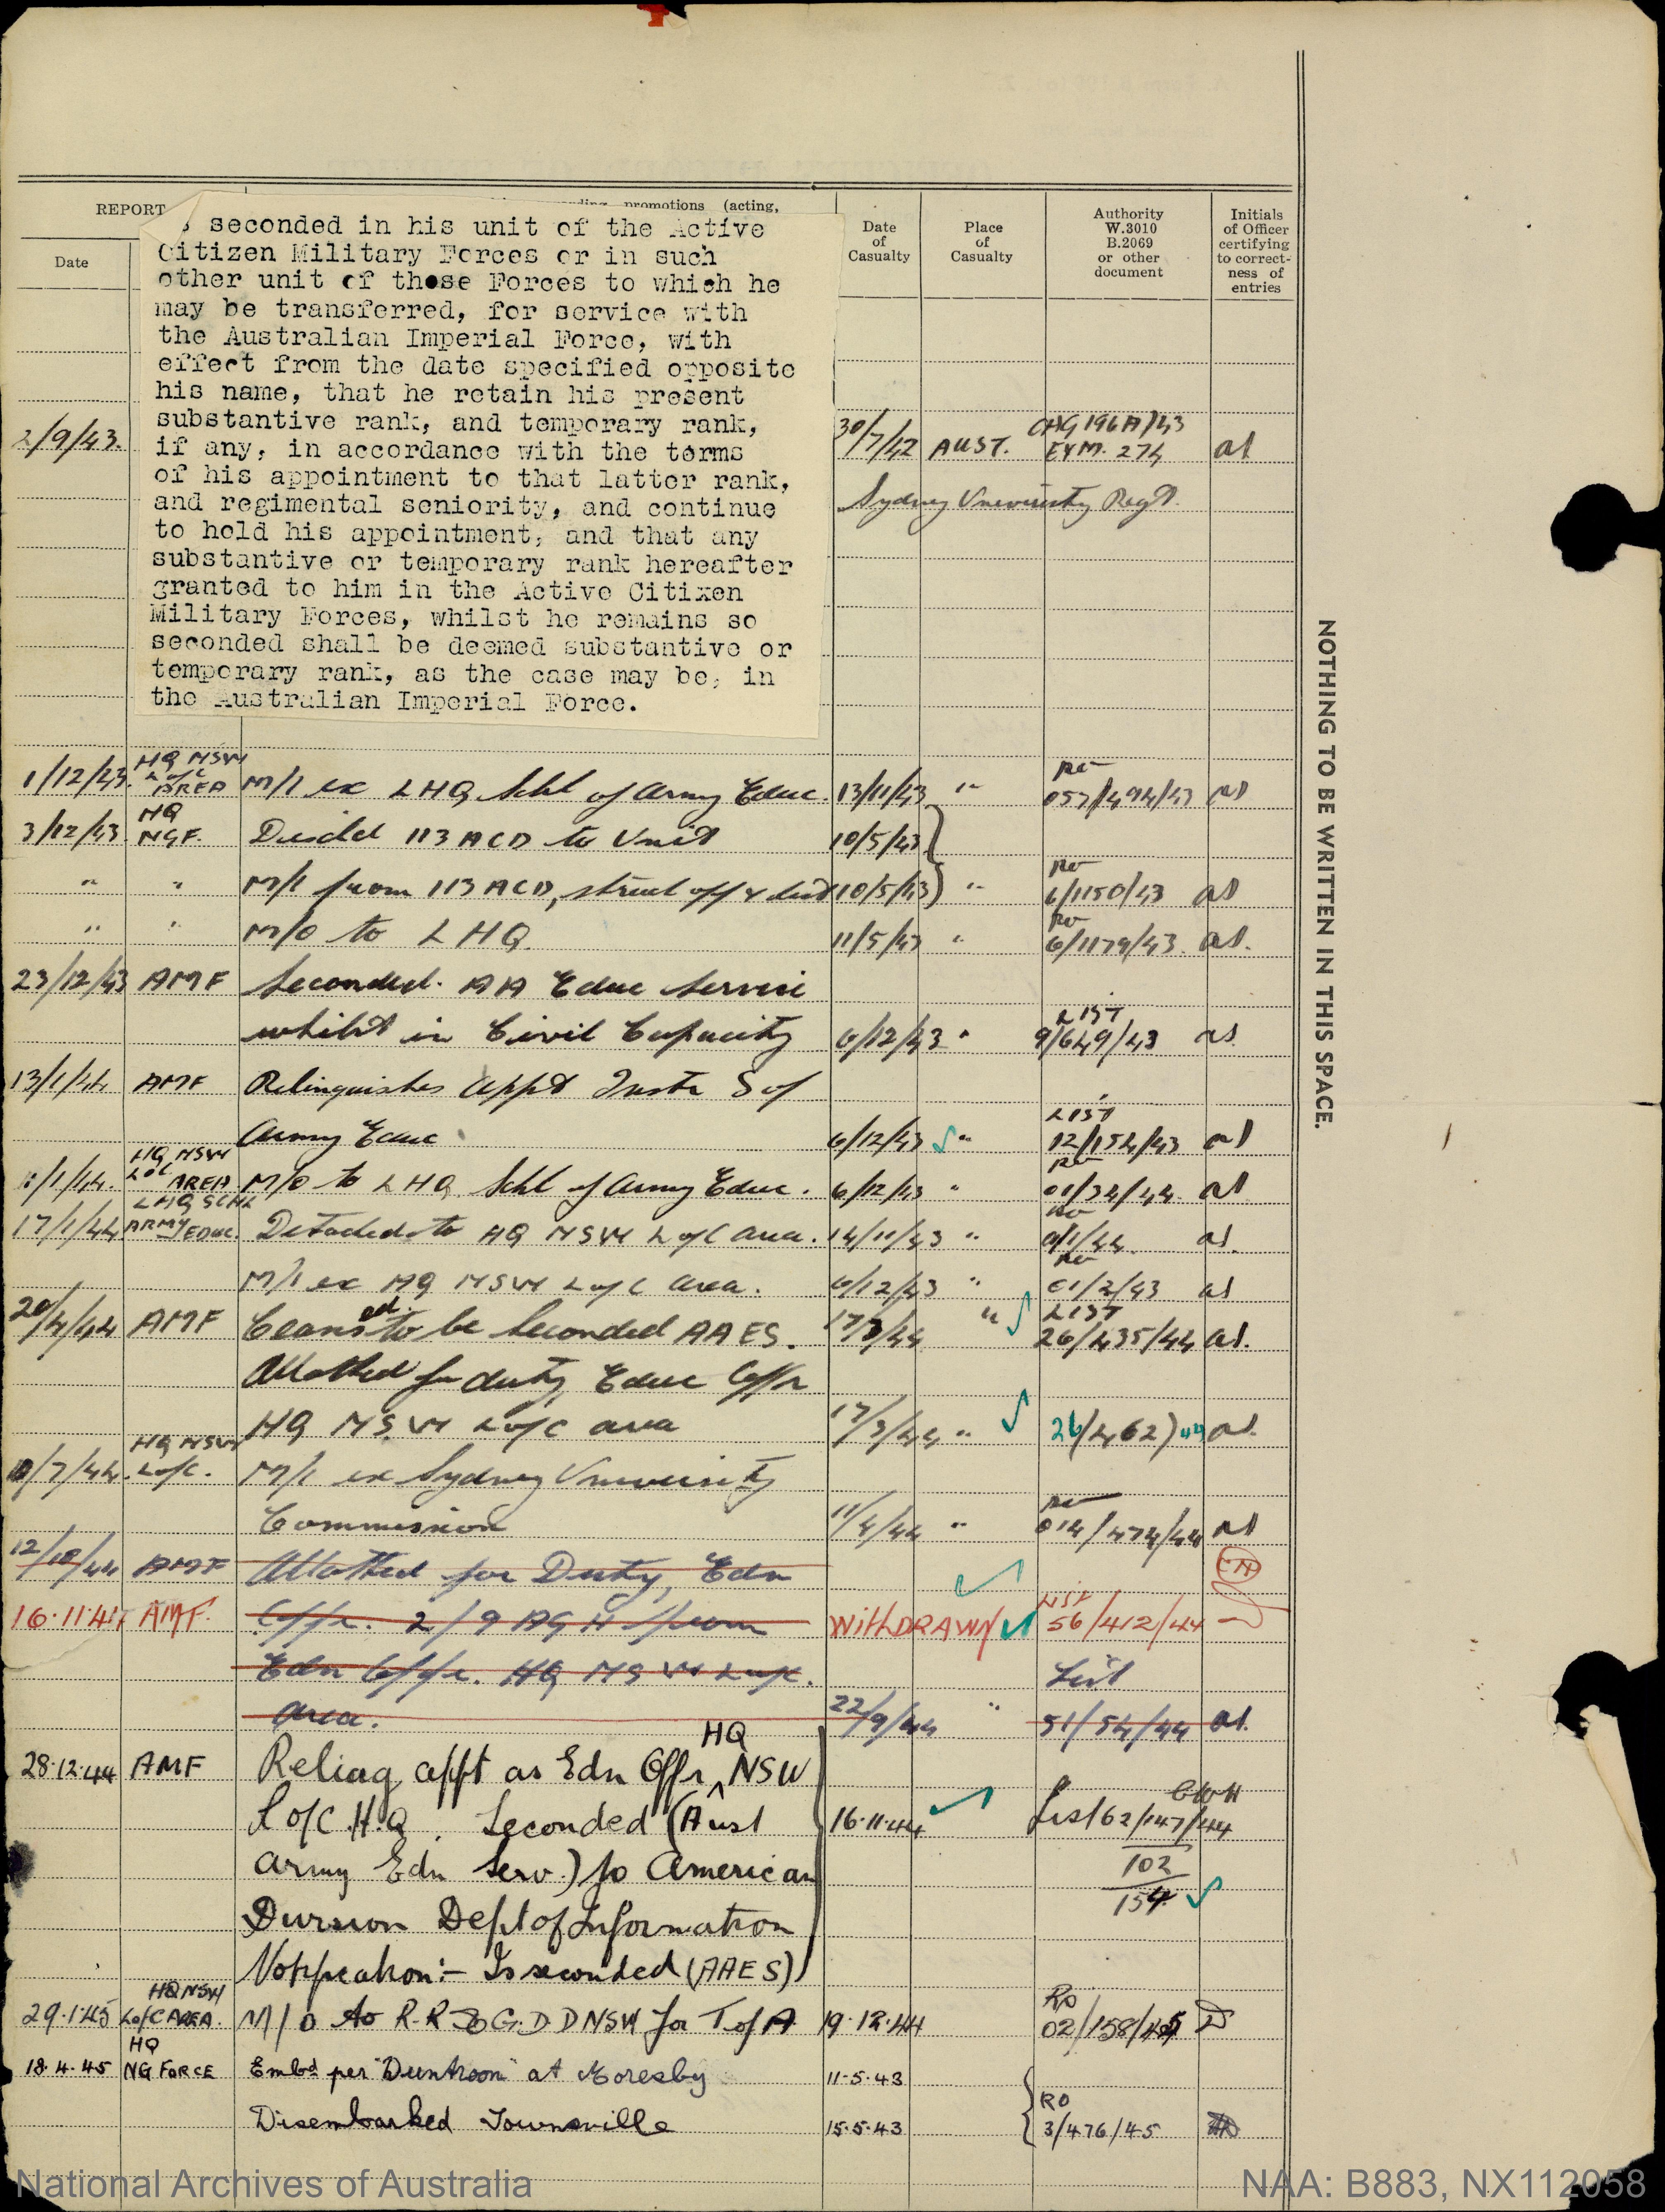 REPORT
promotions (acting,
Date
Date
of
Casualty
Place
of
Casualty
Authority
W.3010
B.2069
or other
document
Initials
of Officer
certifying
to correct-
ness of
entries
s seconded in his unit of the Active
Citizen Military Forces or in such
other unit of those Forces to which he
may be transferred, for service with
the Australian Imperial Force, with
effect from the date specified opposite
his name, that he retain his present
substantive rank, and temporary rank,
if any, in accordance with the terms
of his appointment to that latter rank,
and regimental seniority, and continue
to hold his appointment, and that any
substantive or temporary rank hereafter
granted to him in the Active Citizen
Military Forces, whilst he remains so
seconded shall be deemed substantive or
temporary rank, as the case may be, in
the Australian Imperial Force.
2/9/43. 30/7/42 AUST. 196A/43 274
Sydney University Regt.
1/12/43. HQ NSW L of C AREA M/I ex LHQ Schl of Army Educ. 13/11/43 " RO 057/494/43
3/12/43. HQ NGF. 113 ACD to Unit 10/5/43
" " M/I from 113 ACD, struck off 10/5/43 " RO 6/1150/43
" " M/O to LHQ. 11/5/43 " RO 6/1179/43.
23/12/43 AMF Seconded. AA Educ Service
whilst in Civil Capacity 6/12/43 " LIST 9/649/43
13/1/44 AMF Relinquishes Appt Instr S of
Army Educ 6/12/43 " LIST 12/154/43
11/1/44. HQ NSW L of C AREA M/O to LHQ Schl of Army Educ. 6/12/43 " RO 01/34/44
17/1/44 LHQ SCHL ARMY EDUC. Detached to HQ NSW L of C area. 14/11/43 " RO 01/1/44.
M/I ex HQ NSW L of C area. 6/12/43 " RO 01/2/43
20/4/44 AMF Ceased to be Seconded AAES. 17/3/44 " LIST 26/435/44
Allotted for duty, Educ Offr
HQ NSW L of C area 17/3/44 " 26/462/44
10/7/44. HQ NSW L of C. M/I ex Sydney University
Commission 11/4/44 " RO 014/474/44
12/10/44 AMF Allotted for Duty, Edn
16.11.44 AMF. Offr. 2/9 AGH from WITHDRAWN LIST 56/412/44
Edn Offr. HQ NSW L of C. List
Area. 22/9/44 " 51/54/44
28.12.44 AMF Relinq appt as Edn Offr HQ NSW
L of C H.Q. Seconded (Aust 16.11.44 List 62/147/44
Army Edn Serv.) to American 102
Division Dept of Information 154
Notification:- Is seconded (AAES)
29.1.45 HQ NSW L of C AREA. M/O to R.R & G.D.D NSW for T of A 19.12.44 RO 02/158/45
18.4.45 HQ NG FORCE Embd per "Duntroon" at Moresby 11.5.43
Disembarked Townsville 15.5.43 RO 3/476/45
NOTHING TO BE WRITTEN IN THIS SPACE.
National Archives of Australia
NAA: B883, NX112058